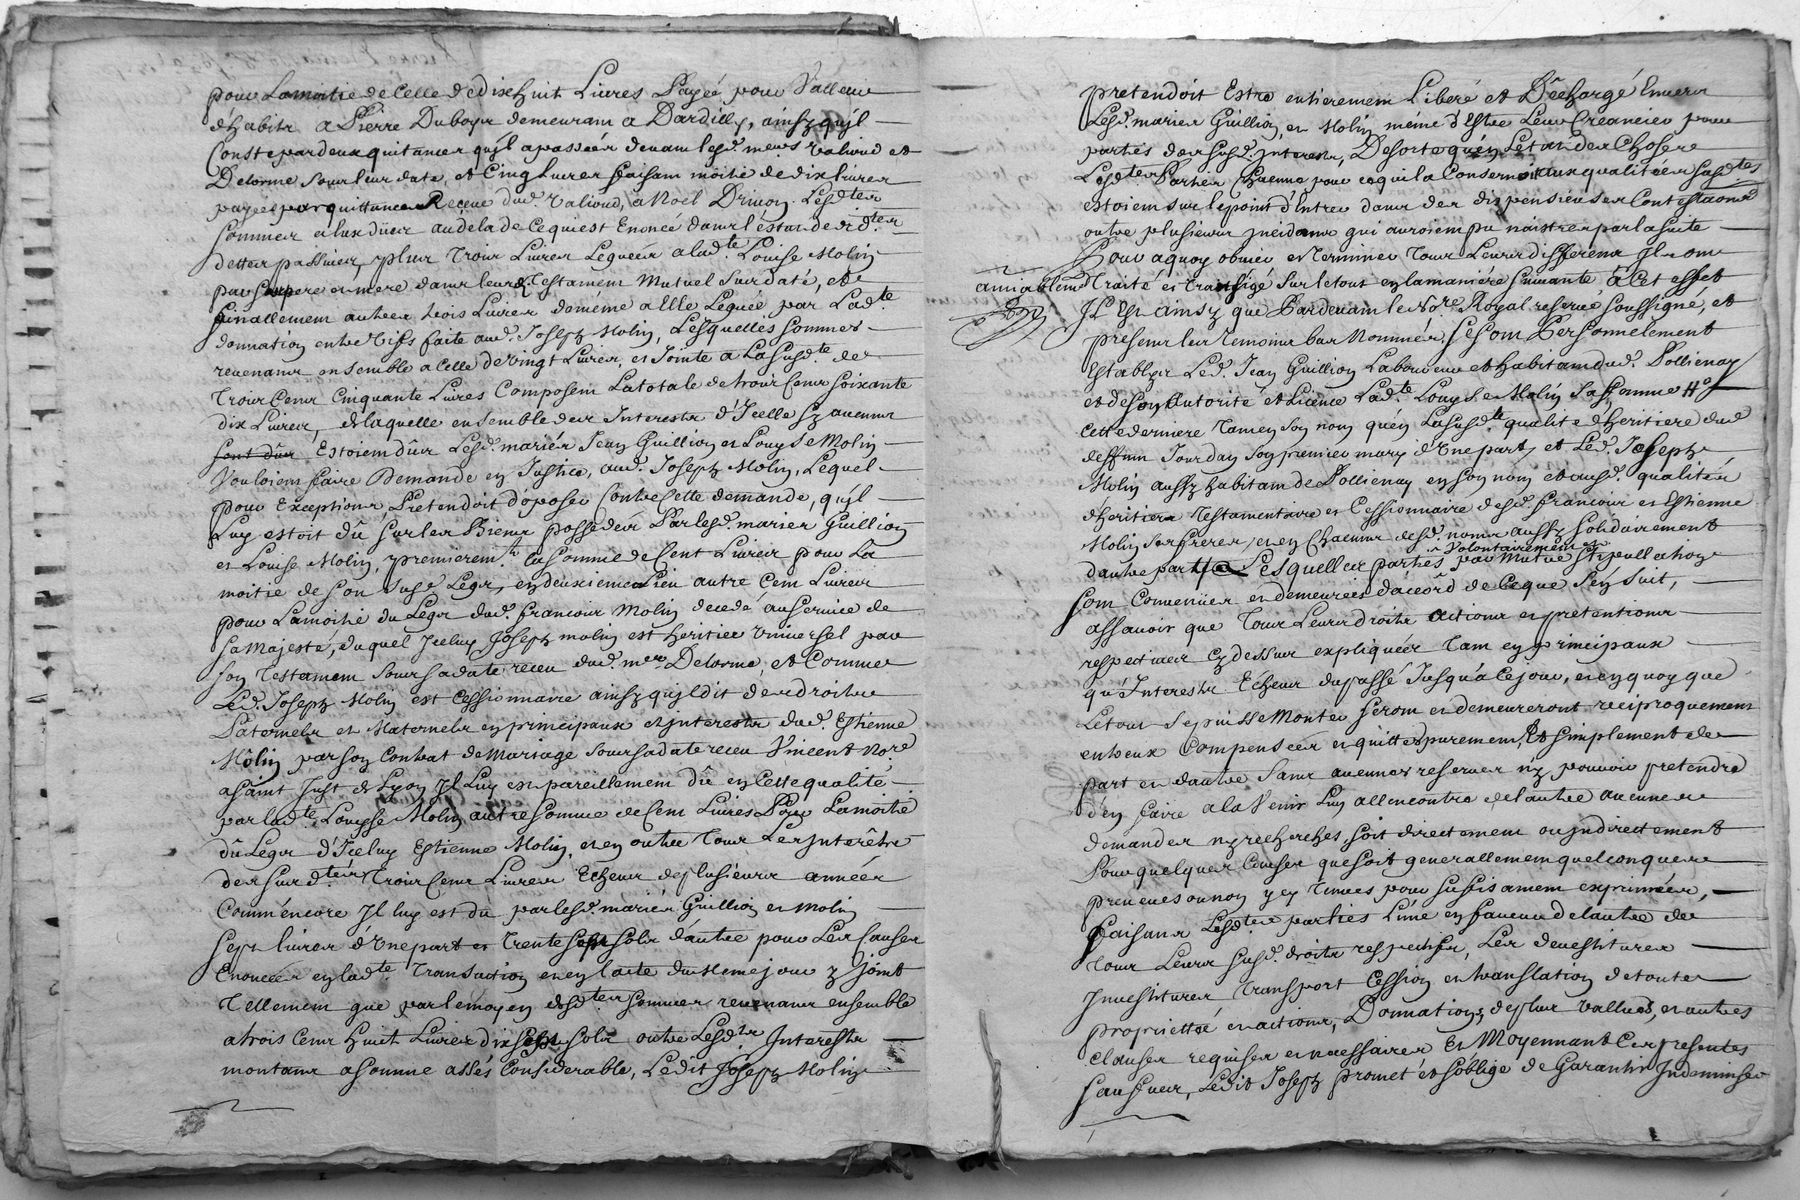 pour Lamoitié de Celle de dixhuit Livres Payéé pour Valleur
d'habits a Pierre Duboys demeurant a Dardilly, ainsy qujl
Conste par deux quitances qujl a passéés devant lesd. mers Valioud et
Delorme sous leur date, et Cinq Livres faisant moitié de dix livres
payéés par quittance Receue dud. Valioud, a Noel Drivon. Lesdtes
sommes enluy dues audela de Ce qui est Enoncé dans l'éstat desdtes
dettes passives, plus Trois Livres Leguéés a ladte. Louise Molin
par ses pere et mere dans leurd. Testament Mutuel Susdaté, et
finallement autres trois Livres de méme a Elle Leguéé par Ladte
donnation entre Vifs faite aud. Joseph Molin, Lesquelles sommes
revenant ensemble a Celle de Vingt Livres, et Jointe a La Susdte. de
Trois Cent Cinquante Livres Composent La totale de trois Cent soixante
dix Livres, de laquelle ensemble des Interests d'Jcelle sy aucuns
sont dûs Estoient dûs Lesd. mariés Jean Guillion et Louyse Molin
Vouloient faire Demande en Justice, aud. Joseph Molin, Lequel
pour Exceptions Pretendoit d'oposer Contre Cette demande, qujl
Luy estoit dû sur les Biens possedés Par lesd. mariés Guillion
et Louise Molin, premierement. la somme de Cent Livres pour La
moitié de son susd. Legs, en deuxieme Lieu autre Cent Livres
pour Lamoitié du Legs dud. francois Molin decedé auservice de
sa Majesté, duquel Jceluy Joseph molin est heritier Universel par
son Testament sous sa date receu dud. mer Delorme, et Comme
Led. Joseph Molin est Cessionnaire ainsy qujl dit des droits
Paternels et Maternels en principaux et Jnterests dud. Estienne
Môlin par son Contrat de Mariage sous sa date receu Vincent Nore
a saint Just de Lyon Jl Luy est pareillement dû en Cette qualité
par ladte. Louyse Molin autre somme de Cent Livres Pour Lamoitié
dû Legs d'Jceluy Estienne Molin, et en outre Tous Les Jnterêts
des susdtes Trois Cent Livres Echeus de plusieurs années
Comm'encore Jl luy est dû par lesd. mariés Guillion et Molin
sept livres d'Une part et Trente sept sols d'autre pour Les Causes
Enoncéés en ladte. Transaction et en l'acte du Meme jour y joint
Tellement que par le moyen desdtes sommes revenant ensemble
a trois Cent huit Livres dix sept sols outre Lesdts Interests
montant a somme assés Considerable, Ledit Joséph Molin
pretendoit Estre entierement Liberé et Déchargé Envers
Lesd. mariés Guillion, et Molin méme d'Estre Leur Creancier pour
parties des susd. Jnterests, De sorte qu'en L'etat des Choses
Lesdtes Parties Chacune pour ce qui la Conserne aux qualitéés susdtes
estoient sur le point d'Entrer dans des dispensieuses Contestaons
outre plusieurs Jncidents qui auroient pu naistre par la suite
Pour a quoy obvier et Terminer Tous Leurs differents Jls ont
amiablemt Traité et Transigé sur le tout en la maniere suivante, a Cet effet
Jl Est ainsy que Pardevant le Nore. Royal reservé soussigné, et
presents les Temoins bas Nommés, se sont Personnelement
Establys Led. Jean Guillion Laboureur et habitant dud. Pollienay
et de son Autorité et Licence Ladte Louyse Molin Sa femme
Cette derniere Tant en son nom qu'en Lasusdte qualité d'heritiere dud
deffunt Jourdan son premier mary d'Une part, et Led. Joseph
Molin aussy habitant de Pollienay en son nom et ausd. qualités
d'heritier Testamentaire et Cessionnaire desd. francois et Estienne
Molin ses freres, et en Chacuns desd. noms aussy solidairement
d'autre part, Lesquelles parties volontairement par Mutue Stipullation
sont Convenües et demeurées d'accôrd de Ce que s'en suit,
assavoir que Tous Leurs droits actions et pretentions
respectives Cy dessus expliquéés Tant en principaux
qu'Jnterests Echeus du passé Jusqu'a Ce jour, et en quoy que
Le tout se puisse Monter seront et demeureront réciproquement
entreux Compenséés et quittes purement, Et simplement de
part et d'autre sans aucunes reserves n'y pouvoir pretendre
d'en faire a la Venir L'un allencontre de l'autre aucunes
demandes ny recherches soit directement ou jndirectement
Pour quelques Causes que soit generallement quelconques
preveues ou non y en Tenues pour suffisament exprimées,
faisant Lesdtes parties L'une en faveur de l'autre de
Tous Leurs susd. droits respectifs, Les devestitures
Jnvestitures Transport Cession et translation de toute
proprietté et actions, Donnation, de plus Vallues, et autres
Clauses requises et necessaires Et Moyennant Ces presentes
sauf que, Ledit Joseph promet et s'oblige de Garantir Jndemniser